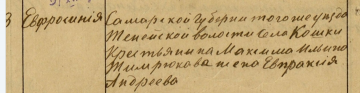 3 Евфросинія Самарской губерніи того же уезда
Тенеевской волости села Кошки
Крестьянина Максима Ильина
Тимрюкава жена Евпраксія
Андреева